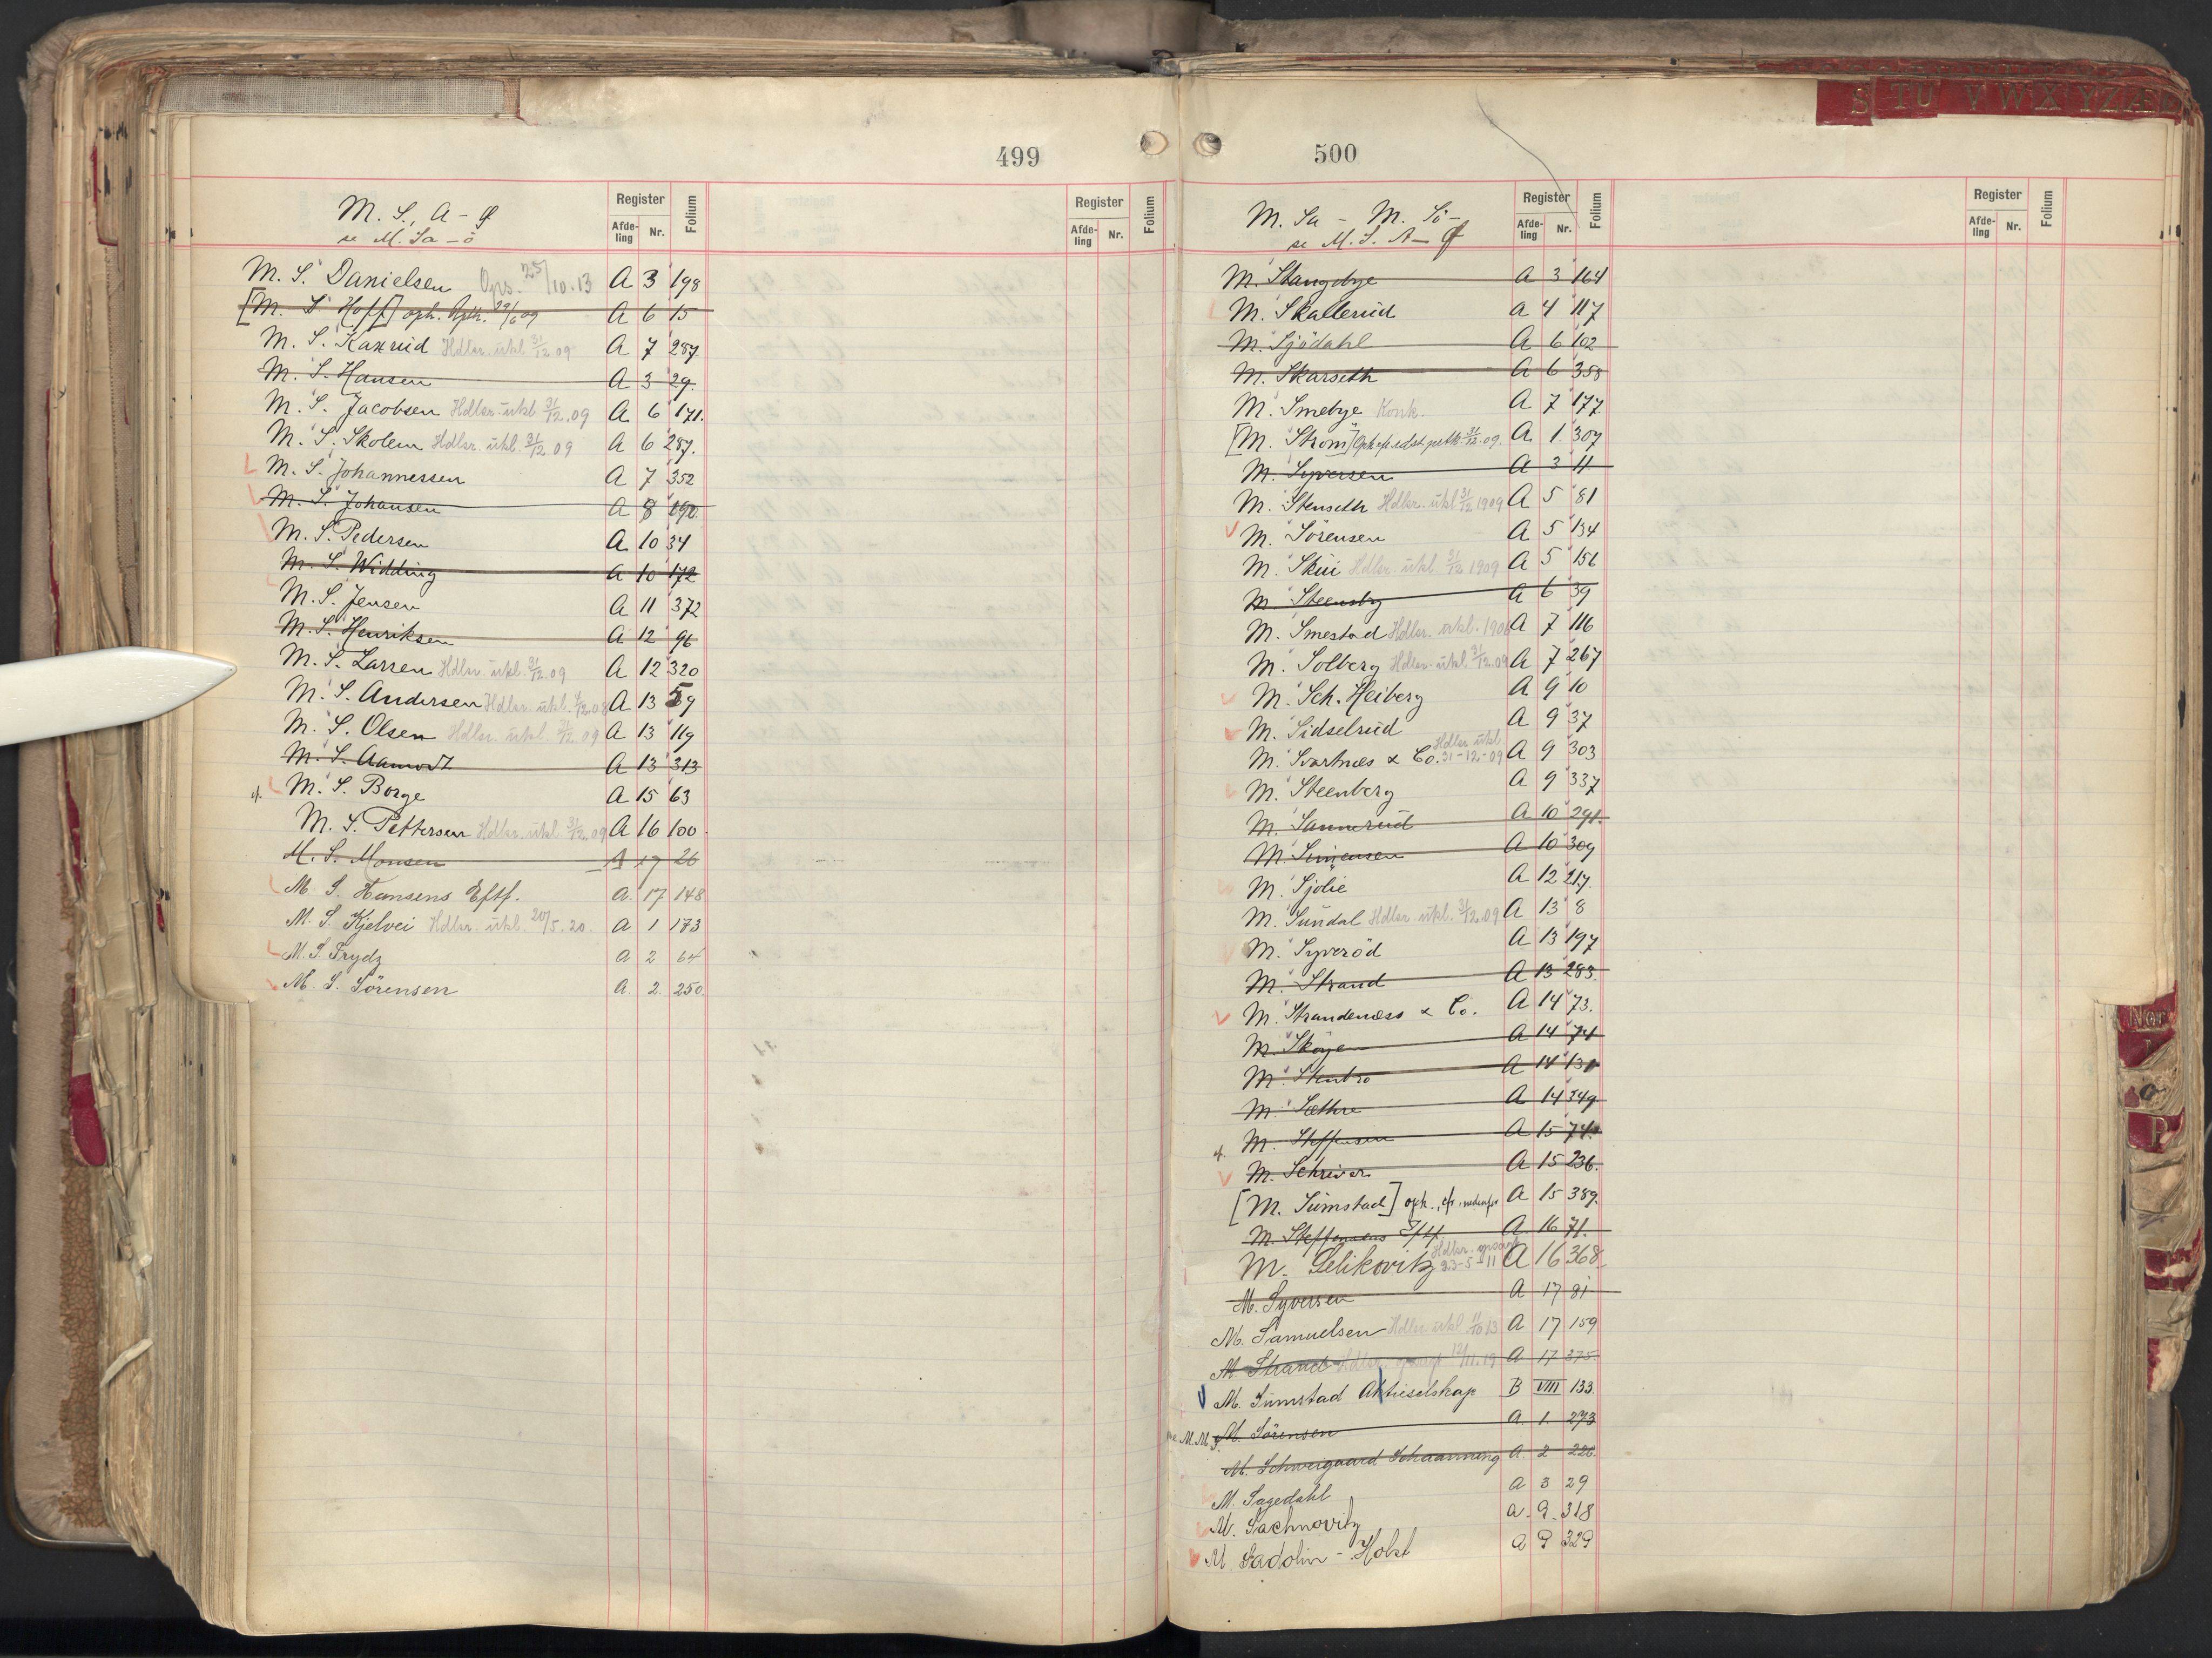 499
M. S., A - Ø
se M. Sa - ö
Register
Afde-
ling
Nr.
Folium
Register
Afde-
ling
Nr.
Folium
M. S. Danielsen Ops. 25/10.13 A 3 198
[M. S. Hoff] oph. 29/6 09 A 6 15
M. S. Kaxrud Hdlsr. ukl 31/12 09 A 7 287.
M. S. Hansen A 3 29.
M. S. Jacobsen Hdlsr. ukl 31/12.09 A 6 171.
M. S. Skolem Hdlsr. ukl. 31/12 09 A 6 287.
M. S. Johannessen A 7 352
M. S. Johansen A 8 190.
M. S. Pedersen A 10 34
M. S. Widding A 10 172
M. S. Jensen A 11 372
M. S. Henriksen A 12 96
M. S. Larsen Hdlsr. ukl. 31/12.09 A 12 320
M. S. Andersen Hdlsr. ukl. 1/12.08 A 13 59
M. S. Olsen Hdlsr. ukl. 31/12.09 A 13 119
M. S. Aamodt A 13 313
M. S. Borge A 15 63
M. S. Pettersen Hdlsr. ukl. 31/12.09 A 16 100.
M. S. Monsen A 17 26
M. S. Hansens Eftf. A. 17 148
M. S. Kjelvei Hdlsr. ukl. 20/5.20. A 1 173
M. S. Frydz A 2 64
M. S. Sörensen A. 2. 250.
S TU V W X Y Z Æ
500
M. Sa - M. Sö -
se M. S. A - Ø
Register
Afde-
ling
Nr.
Folium
Register
Afde-
ling
Nr.
Folium
M. Stangebye A 3 164
M. Skallerud A 4 117
M. Sjödahl A 6 102
M. Skarseth A 6 358
M. Smebye Konk. A 7 177.
[M. Strom] A 1. 307
M. Syversen A 3 11
M. Stenseth Hdlsr. ukl 31/12 1909 A 5 81
M. Sörensen A 5 134
M. Skui Hdlsr. ukl. 31/12 1909 A 5 156
M. Steensby A 6 39
M. Smestad Hdlsr. ukl. 1906 A 7 116
M. Solberg Hdlsr. ukl 31/12.09 A 7 267
M. Sch. Heiberg A 9 10
M. Sidselrud A 9 37
M. Svartnæs & Co. Hdlsr. ukl 31-12-09 A 9 303
M. Steenberg A 9 337
M. Sannerud A 10 291.
M. Simensen A 10 309
M. Sjölie A 12 217.
M. Sundal Hdlsr. ukl. 31/12.09 A 13 8
M. Syveröd A 13 197
M. Strand A 13 283.
M. Strandenæss & Co. A 14 73.
M. Sköyen A 14 74
M. Stenbro A 14 131
M. Sæthre A 14 349
M. Steffensen A 15 74.
M. Schriver A 15 236.
[M. Sumstad] oph., cfr. nedenfor A 15 389.
M. Steffensens Eftf. A. 16 71.
M. Selikovitz Hdlsr. opsagt 23-5-11 A 16 368
M. Syversen A 17 81
M. Samuelsen Hdlsr ukl 1/10 13 A 17 159
M. Strand Hdlsr. opsagt 12/11.19 A 17 375.
M. Sumstad Aktieselskap B VIII 133
M. Sörensen A 1. 293
M. Schweigaard Johanning A 2 226.
M. Sagedahl A 3 29
M. Sachnovitz A. 9. 318
M. Gadolin - Holst A 9 329
Nor
P